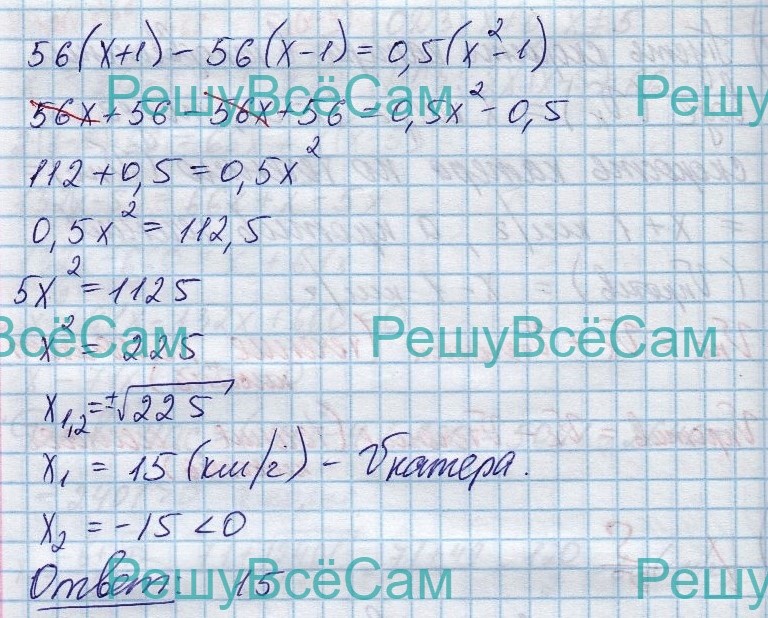 56(x+1) - 56(x-1) = 0,5(x²-1)
РешуВсёСам
Решу
56x + 56 - 56x + 56 = 0,5x² - 0,5
112 + 0,5 = 0,5x²
0,5x² = 112,5
5x² = 1125
x² = 225
уВсёСам
РешуВсёСам
x₁,₂ = ±√225
x₁ = 15 (км/ч) - Vкатера.
x₂ = -15 < 0
Ответ: 15
РешуВсёСам
Решу